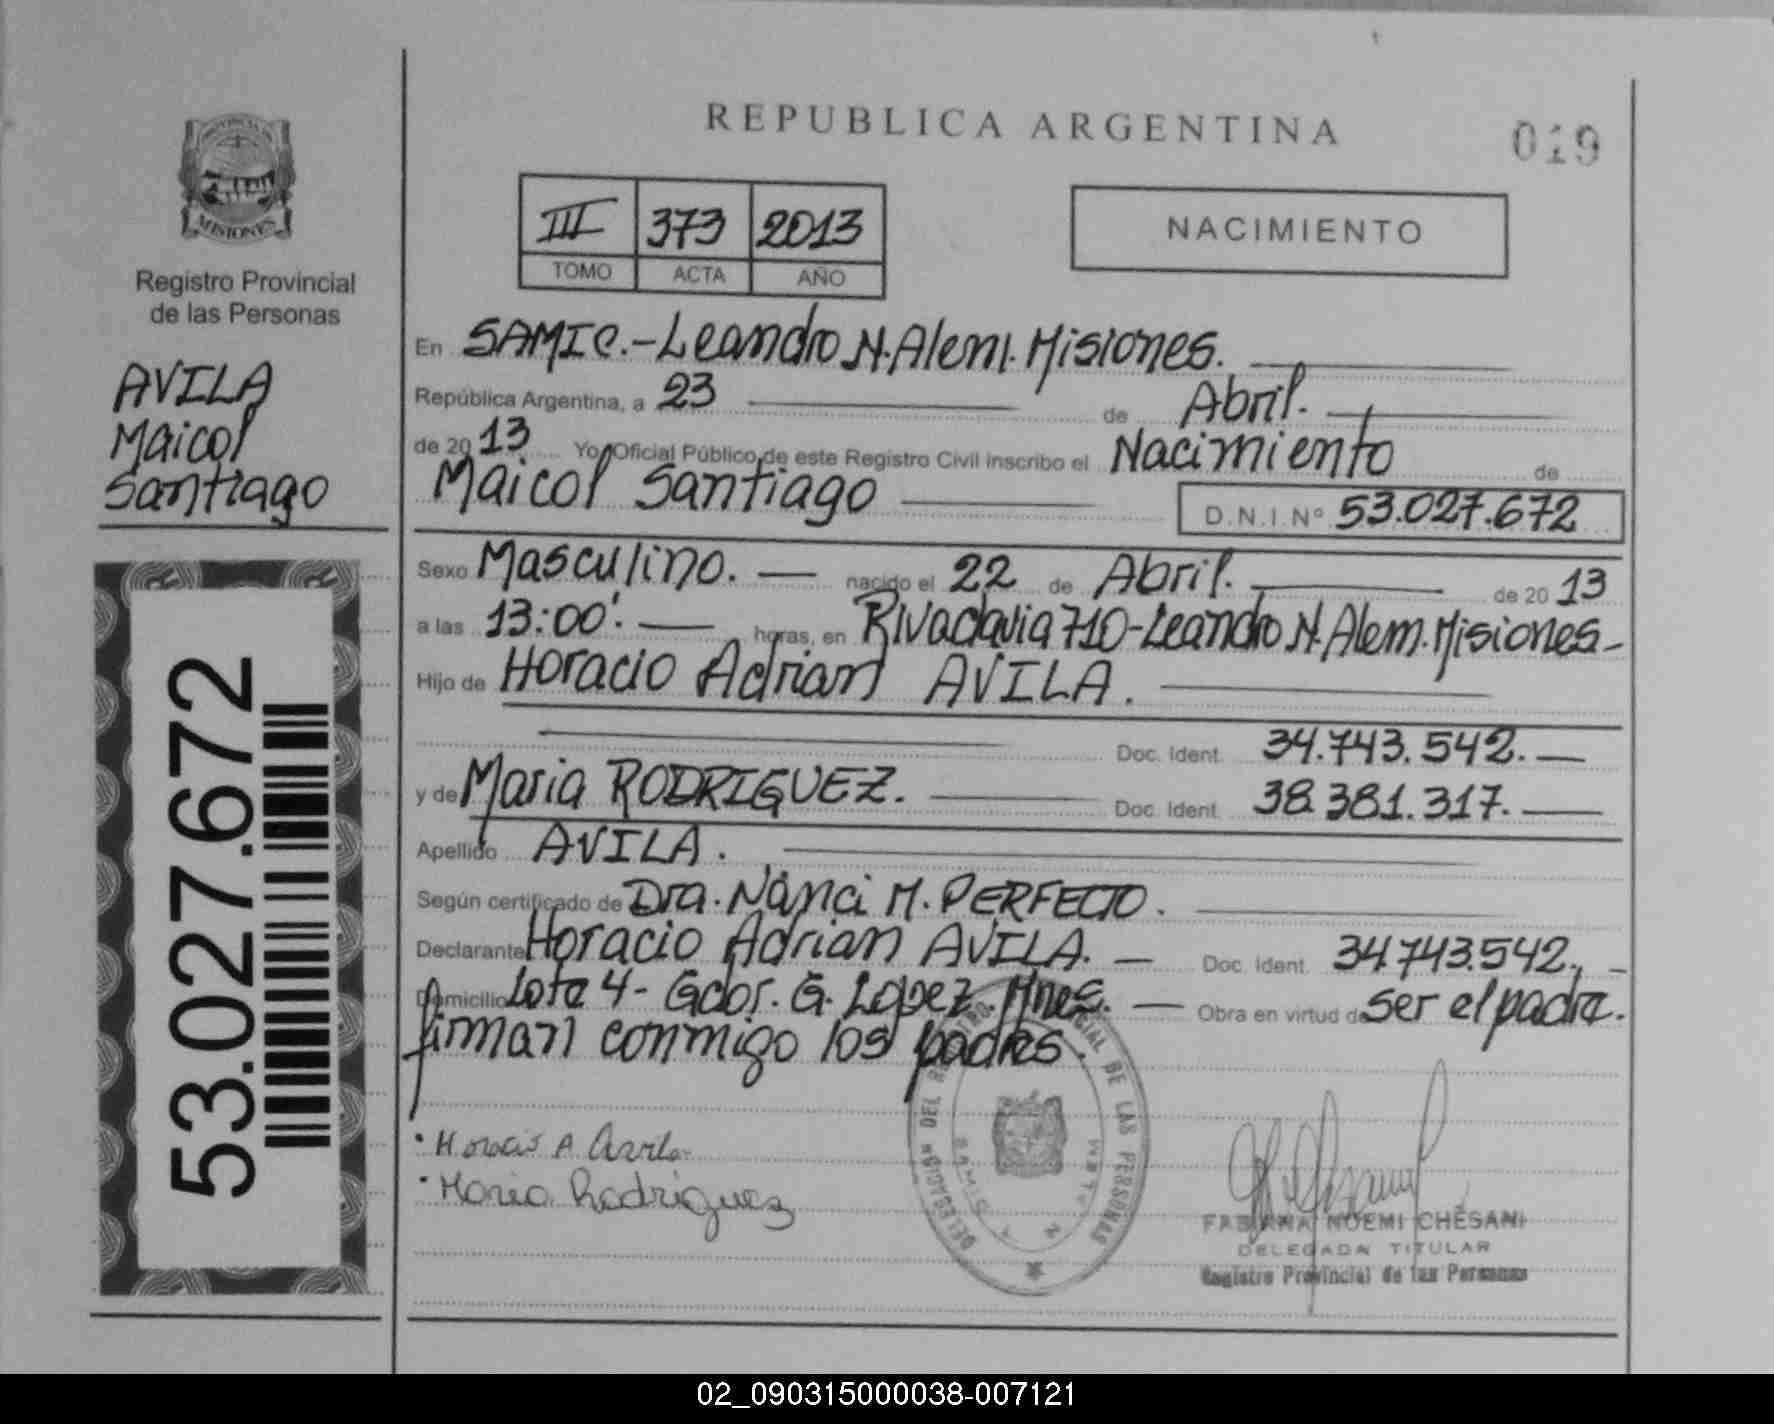 REPUBLICA ARGENTINA
019
PROVINCIA DE
MISIONES
Registro Provincial
de las Personas
AVILA
Maicol
Santiago
53.027.672
III 373 2013
TOMO ACTA AÑO
NACIMIENTO
En SAMIC.-Leandro N.Alem. Misiones.
República Argentina, a 23 de Abril.
de 2013 Yo, Oficial Público de este Registro Civil inscribo el Nacimiento de
Maicol Santiago D.N.I.Nº 53.027.672
Sexo Masculino. nacido el 22 de Abril. de 2013
a las 13:00'. horas, en Rivadavia 710-Leandro N.Alem. Misiones-
Hijo de Horacio Adrian AVILA.
Doc. Ident. 34.743.542.
y de Maria RODRIGUEZ. Doc. Ident. 38.381.317.
Apellido AVILA.
Según certificado de Dra. Nanci M. PERFECTO.
Declarante Horacio Adrian AVILA. Doc. Ident. 34.743.542.
Domicilio Lote 4- Gdor. G. Lopez. Mnes. Obra en virtud de ser el padre.
firman conmigo los padres.
Horacio A Avila
Maria Rodriguez
DELEGACION DEL REGISTRO PROVINCIAL DE LAS PERSONAS
FABIANA NOEMI CHESANI
DELEGADA TITULAR
Registro Provincial de las Personas
02_090315000038-007121